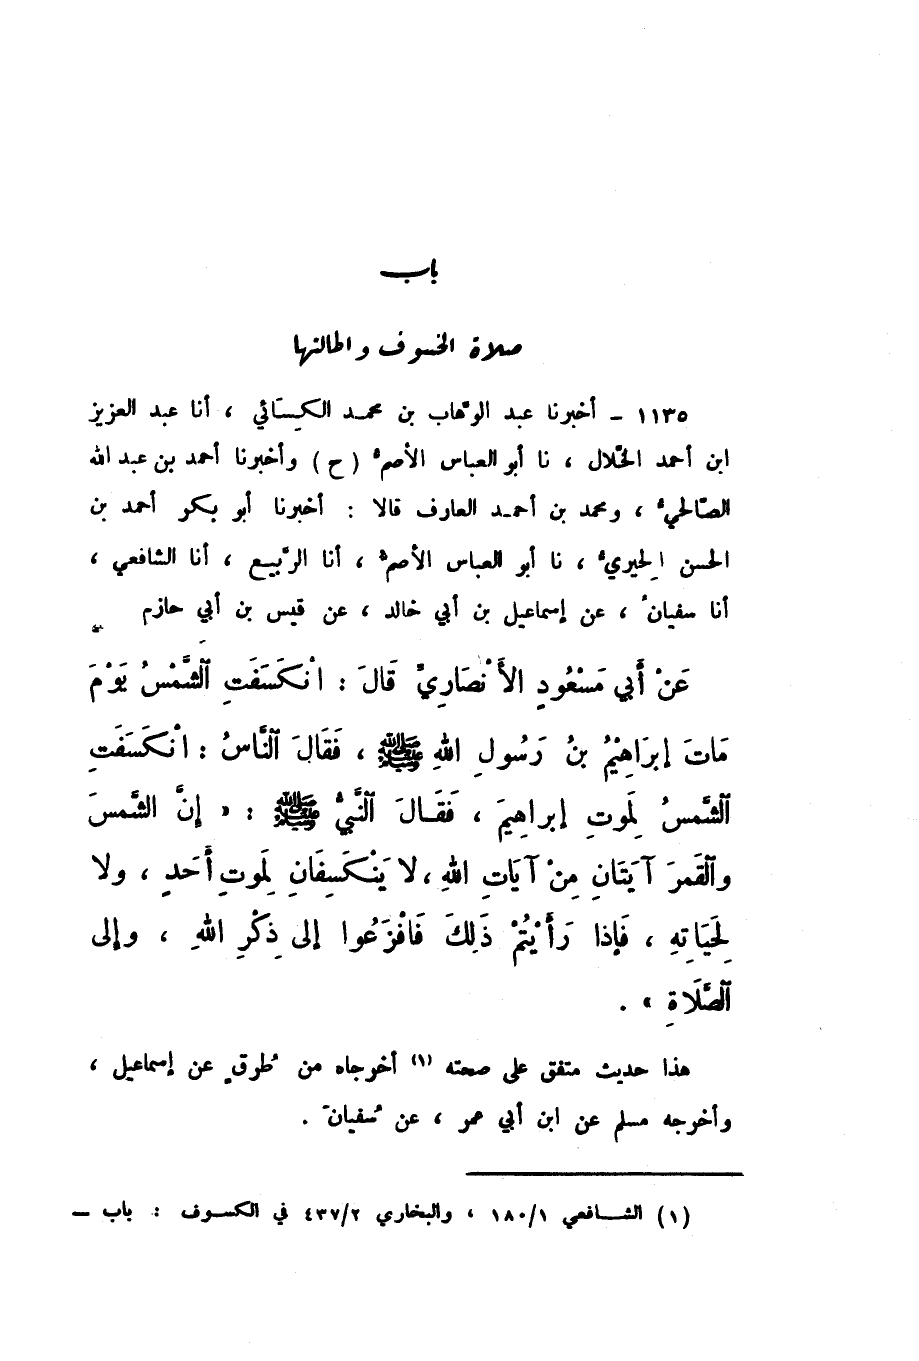 باب
صلاة الخسوف واطالتها
١١٣٥ – أخبرنا عبد الوهّاب بن محمد الكسَائي ، أنا عبد العزيز
ابن أحمد الخلّال ، نا أبو العباس الأصمُّ ( ح ) وأخبرنا أحمد بن عبد الله
الصّالحيُّ ، ومحمد بن أحمد العارف قالا : أخبرنا أبو بكر أحمد بن
الحسن الحِيريُّ ، نا أبو العباس الأصمُّ ، أنا الرَّبيع ، أنا الشافعي ،
أنا سفيانُ ، عن إسماعيل بن أبي خالد ، عن قيس بن أبي حازم
عَنْ أَبي مَسْعُودٍ الأَنْصَارِيِّ قَالَ : انْكَسَفَتِ الشَّمْسُ يَوْمَ
مَاتَ إبرَاهِيْمُ بنُ رَسُولِ اللهِ ﷺ ، فَقَالَ النَّاسُ : انْكَسَفَتِ
الشَّمسُ لِمَوتِ إبراهِيمَ ، فَقَالَ النَّبيُّ ﷺ : « إنَّ الشَّمسَ
والقَمَرَ آيَتَانِ مِنْ آيَاتِ اللهِ ، لا يَنْكَسِفَانِ لِمَوتِ أَحَدٍ ، ولا
لِحَيَاتِهِ ، فَإذا رَأَيْتُمْ ذَلِكَ فَافْزَعُوا إلى ذِكْرِ اللهِ ، وإلى
الصَّلَاةِ » .
هذا حديث متفق على صحته (١) أخرجاه من طُرقٍ عن إسماعيل ،
وأخرجه مسلم عن ابن أبي عمر ، عن سُفيانَ .
(١) الشافعي ١٨٠/١ ، والبخاري ٤٣٧/٢ في الكسوف : باب –